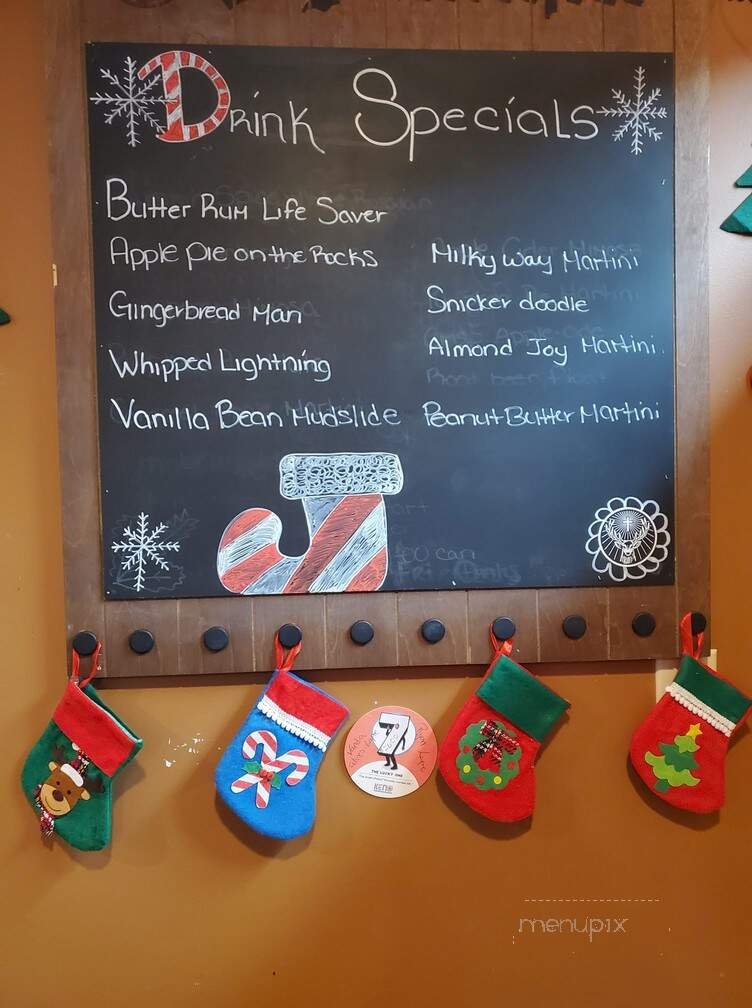 Drink Specials
Butter Rum Life Saver
Apple Pie on the Rocks
Gingerbread Man
Whipped Lightning
Vanilla Bean Mudslide
Milky Way Martini
Snicker doodle
Almond Joy Martini
Peanut Butter Martini
THE LUCKY ONE
KENO
menupix